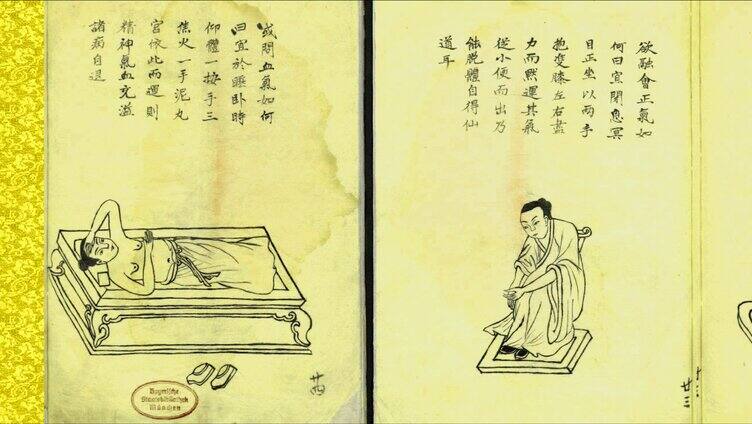 欲融會正氣如
何曰宜閉息冥
目正坐以兩手
抱变膝左右盡
力而默運其氣
從小便而出乃
能脫體自得仙
道耳
廿三
或問血氣如何
曰宜於睡臥時
仰體一按手三
焦火一手泥丸
宮依此而運則
精神氣血充溢
諸病自退
廿四
Bayerische
Staatsbibliothek
München